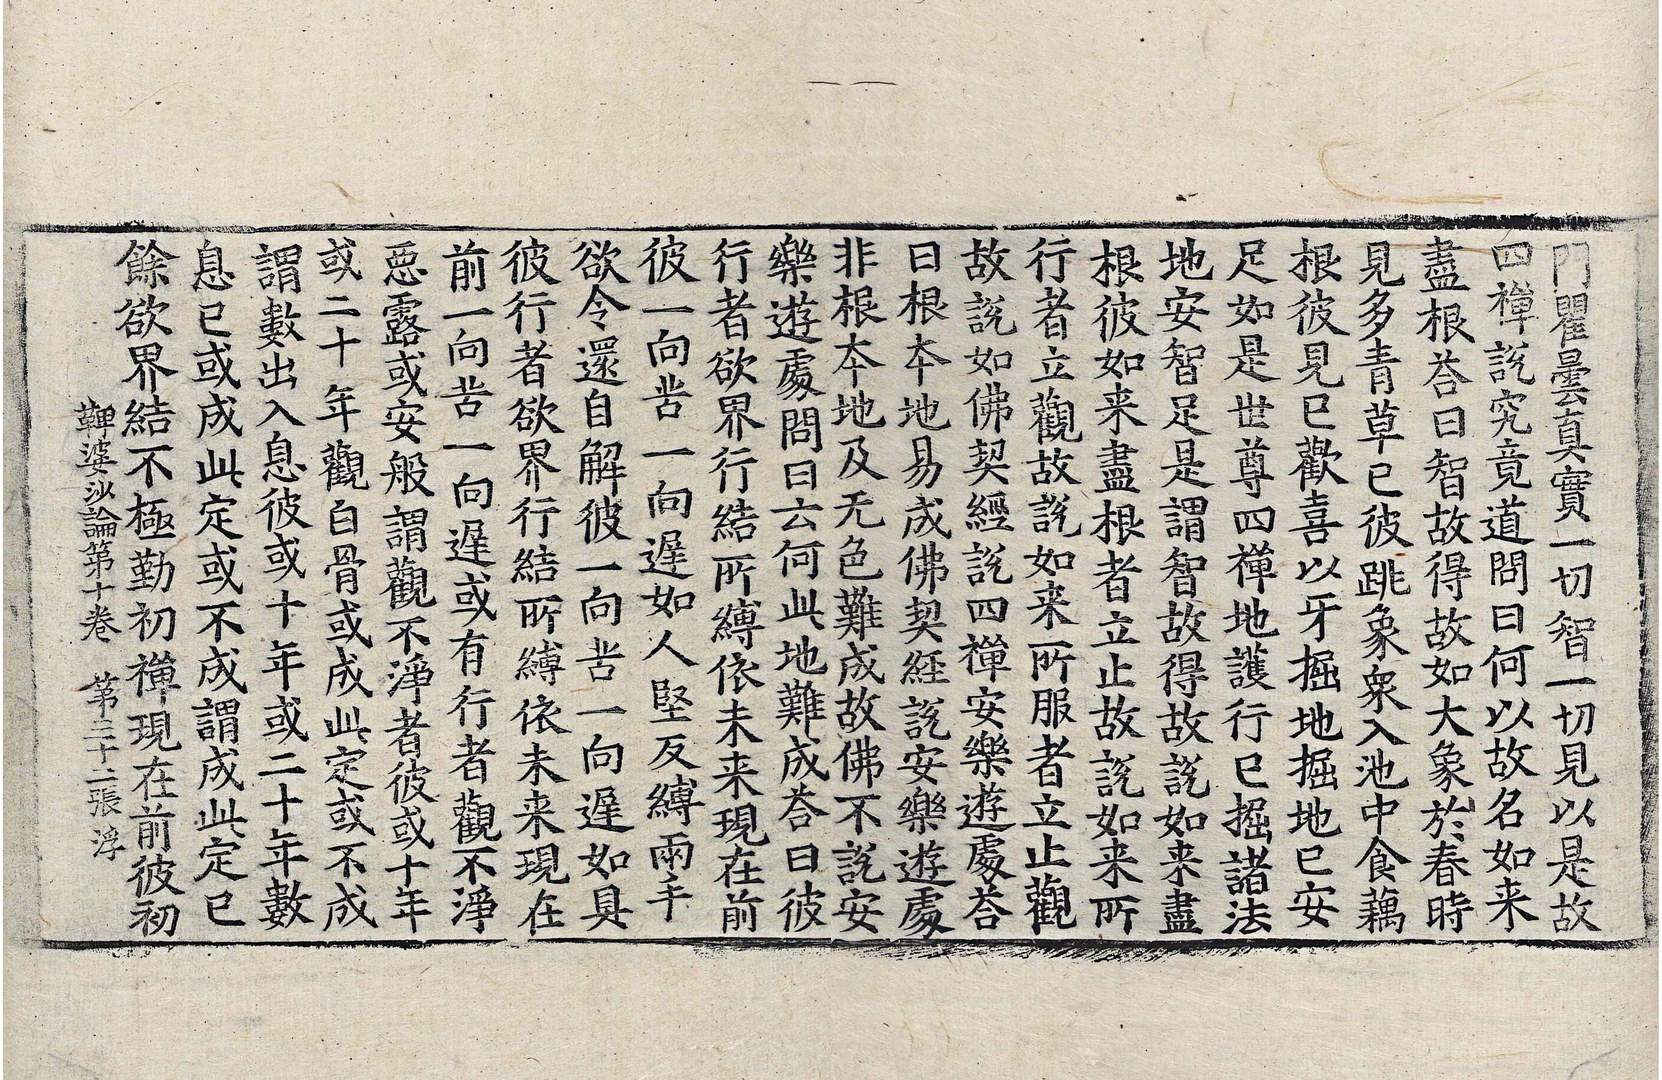 門瞿曇真實一切智一切見以是故
四禪說究竟道問曰何以故名如来
盡根荅曰智故得故如大象於春時
見多青草已彼跳象衆入池中食藕
根彼見已歡喜以牙掘地掘地已安
足如是世尊四禪地護行已掘諸法
地安智足是謂智故得故說如来盡
根彼如来盡根者立止故說如来所
行者立觀故說如来所服者立止觀
故說如佛契經說四禪安樂遊處荅
曰根本地易成佛契經說安樂遊處
非根本地及无色難成故佛不說安
樂遊處問曰云何此地難成荅曰彼
行者欲界行結所縛依未来現在前
彼一向苦一向遲如人堅反縛兩手
欲令還自解彼一向苦一向遲如具
彼行者欲界行結所縛依未来現在
前一向苦一向遲或有行者觀不淨
惡露或安般謂觀不淨者彼或十年
或二十年觀白骨或成此定或不成
謂數出入息彼或十年或二十年數
息已或成此定或不成謂成此定已
餘欲界結不極勤初禪現在前彼初
鞞婆沙論第十卷　第三十二張　浮